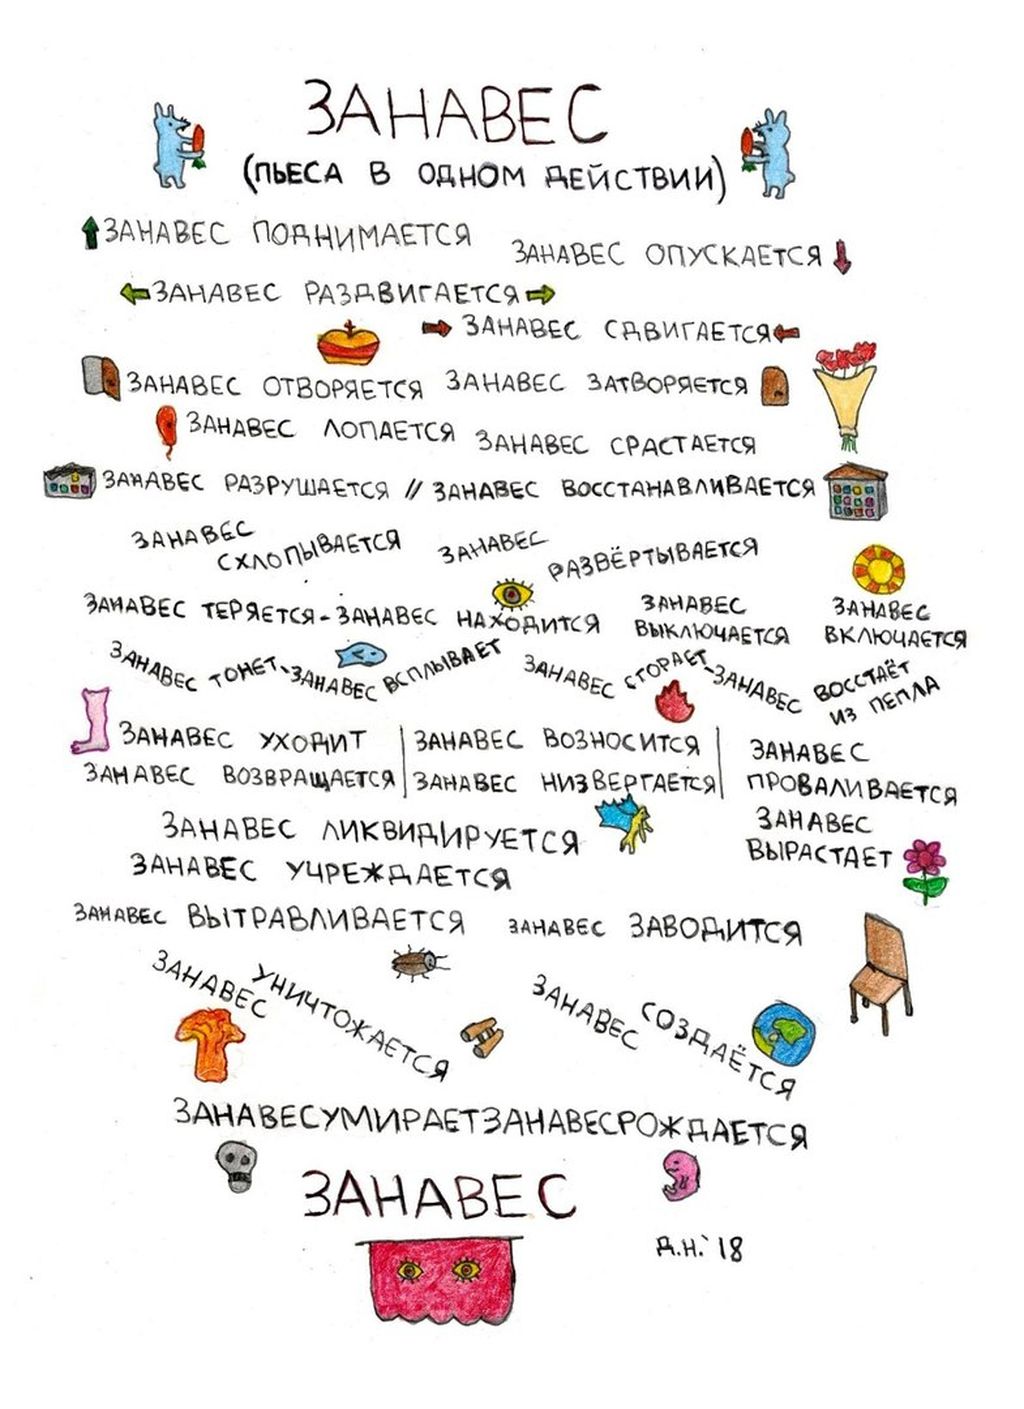 ЗАНАВЕС
(ПЬЕСА В ОДНОМ ДЕЙСТВИИ)
ЗАНАВЕС ПОДНИМАЕТСЯ
ЗАНАВЕС ОПУСКАЕТСЯ
ЗАНАВЕС РАЗДВИГАЕТСЯ
ЗАНАВЕС СДВИГАЕТСЯ
ЗАНАВЕС ОТВОРЯЕТСЯ ЗАНАВЕС ЗАТВОРЯЕТСЯ
ЗАНАВЕС ЛОПАЕТСЯ ЗАНАВЕС СРАСТАЕТСЯ
ЗАНАВЕС РАЗРУШАЕТСЯ // ЗАНАВЕС ВОССТАНАВЛИВАЕТСЯ
ЗАНАВЕС СХЛОПЫВАЕТСЯ ЗАНАВЕС РАЗВЁРТЫВАЕТСЯ
ЗАНАВЕС ТЕРЯЕТСЯ - ЗАНАВЕС НАХОДИТСЯ
ЗАНАВЕС
ВЫКЛЮЧАЕТСЯ
ЗАНАВЕС
ВКЛЮЧАЕТСЯ
ЗАНАВЕС ТОНЕТ - ЗАНАВЕС ВСПЛЫВАЕТ
ЗАНАВЕС СГОРАЕТ - ЗАНАВЕС ВОССТАЁТ
ИЗ ПЕПЛА
ЗАНАВЕС УХОДИТ
ЗАНАВЕС ВОЗВРАЩАЕТСЯ
ЗАНАВЕС ВОЗНОСИТСЯ
ЗАНАВЕС НИЗВЕРГАЕТСЯ
ЗАНАВЕС
ПРОВАЛИВАЕТСЯ
ЗАНАВЕС
ВЫРАСТАЕТ
ЗАНАВЕС ЛИКВИДИРУЕТСЯ
ЗАНАВЕС УЧРЕЖДАЕТСЯ
ЗАНАВЕС ВЫТРАВЛИВАЕТСЯ ЗАНАВЕС ЗАВОДИТСЯ
ЗАНАВЕС УНИЧТОЖАЕТСЯ
ЗАНАВЕС СОЗДАЁТСЯ
ЗАНАВЕСУМИРАЕТЗАНАВЕСРОЖДАЕТСЯ
ЗАНАВЕС
Д.Н.'18